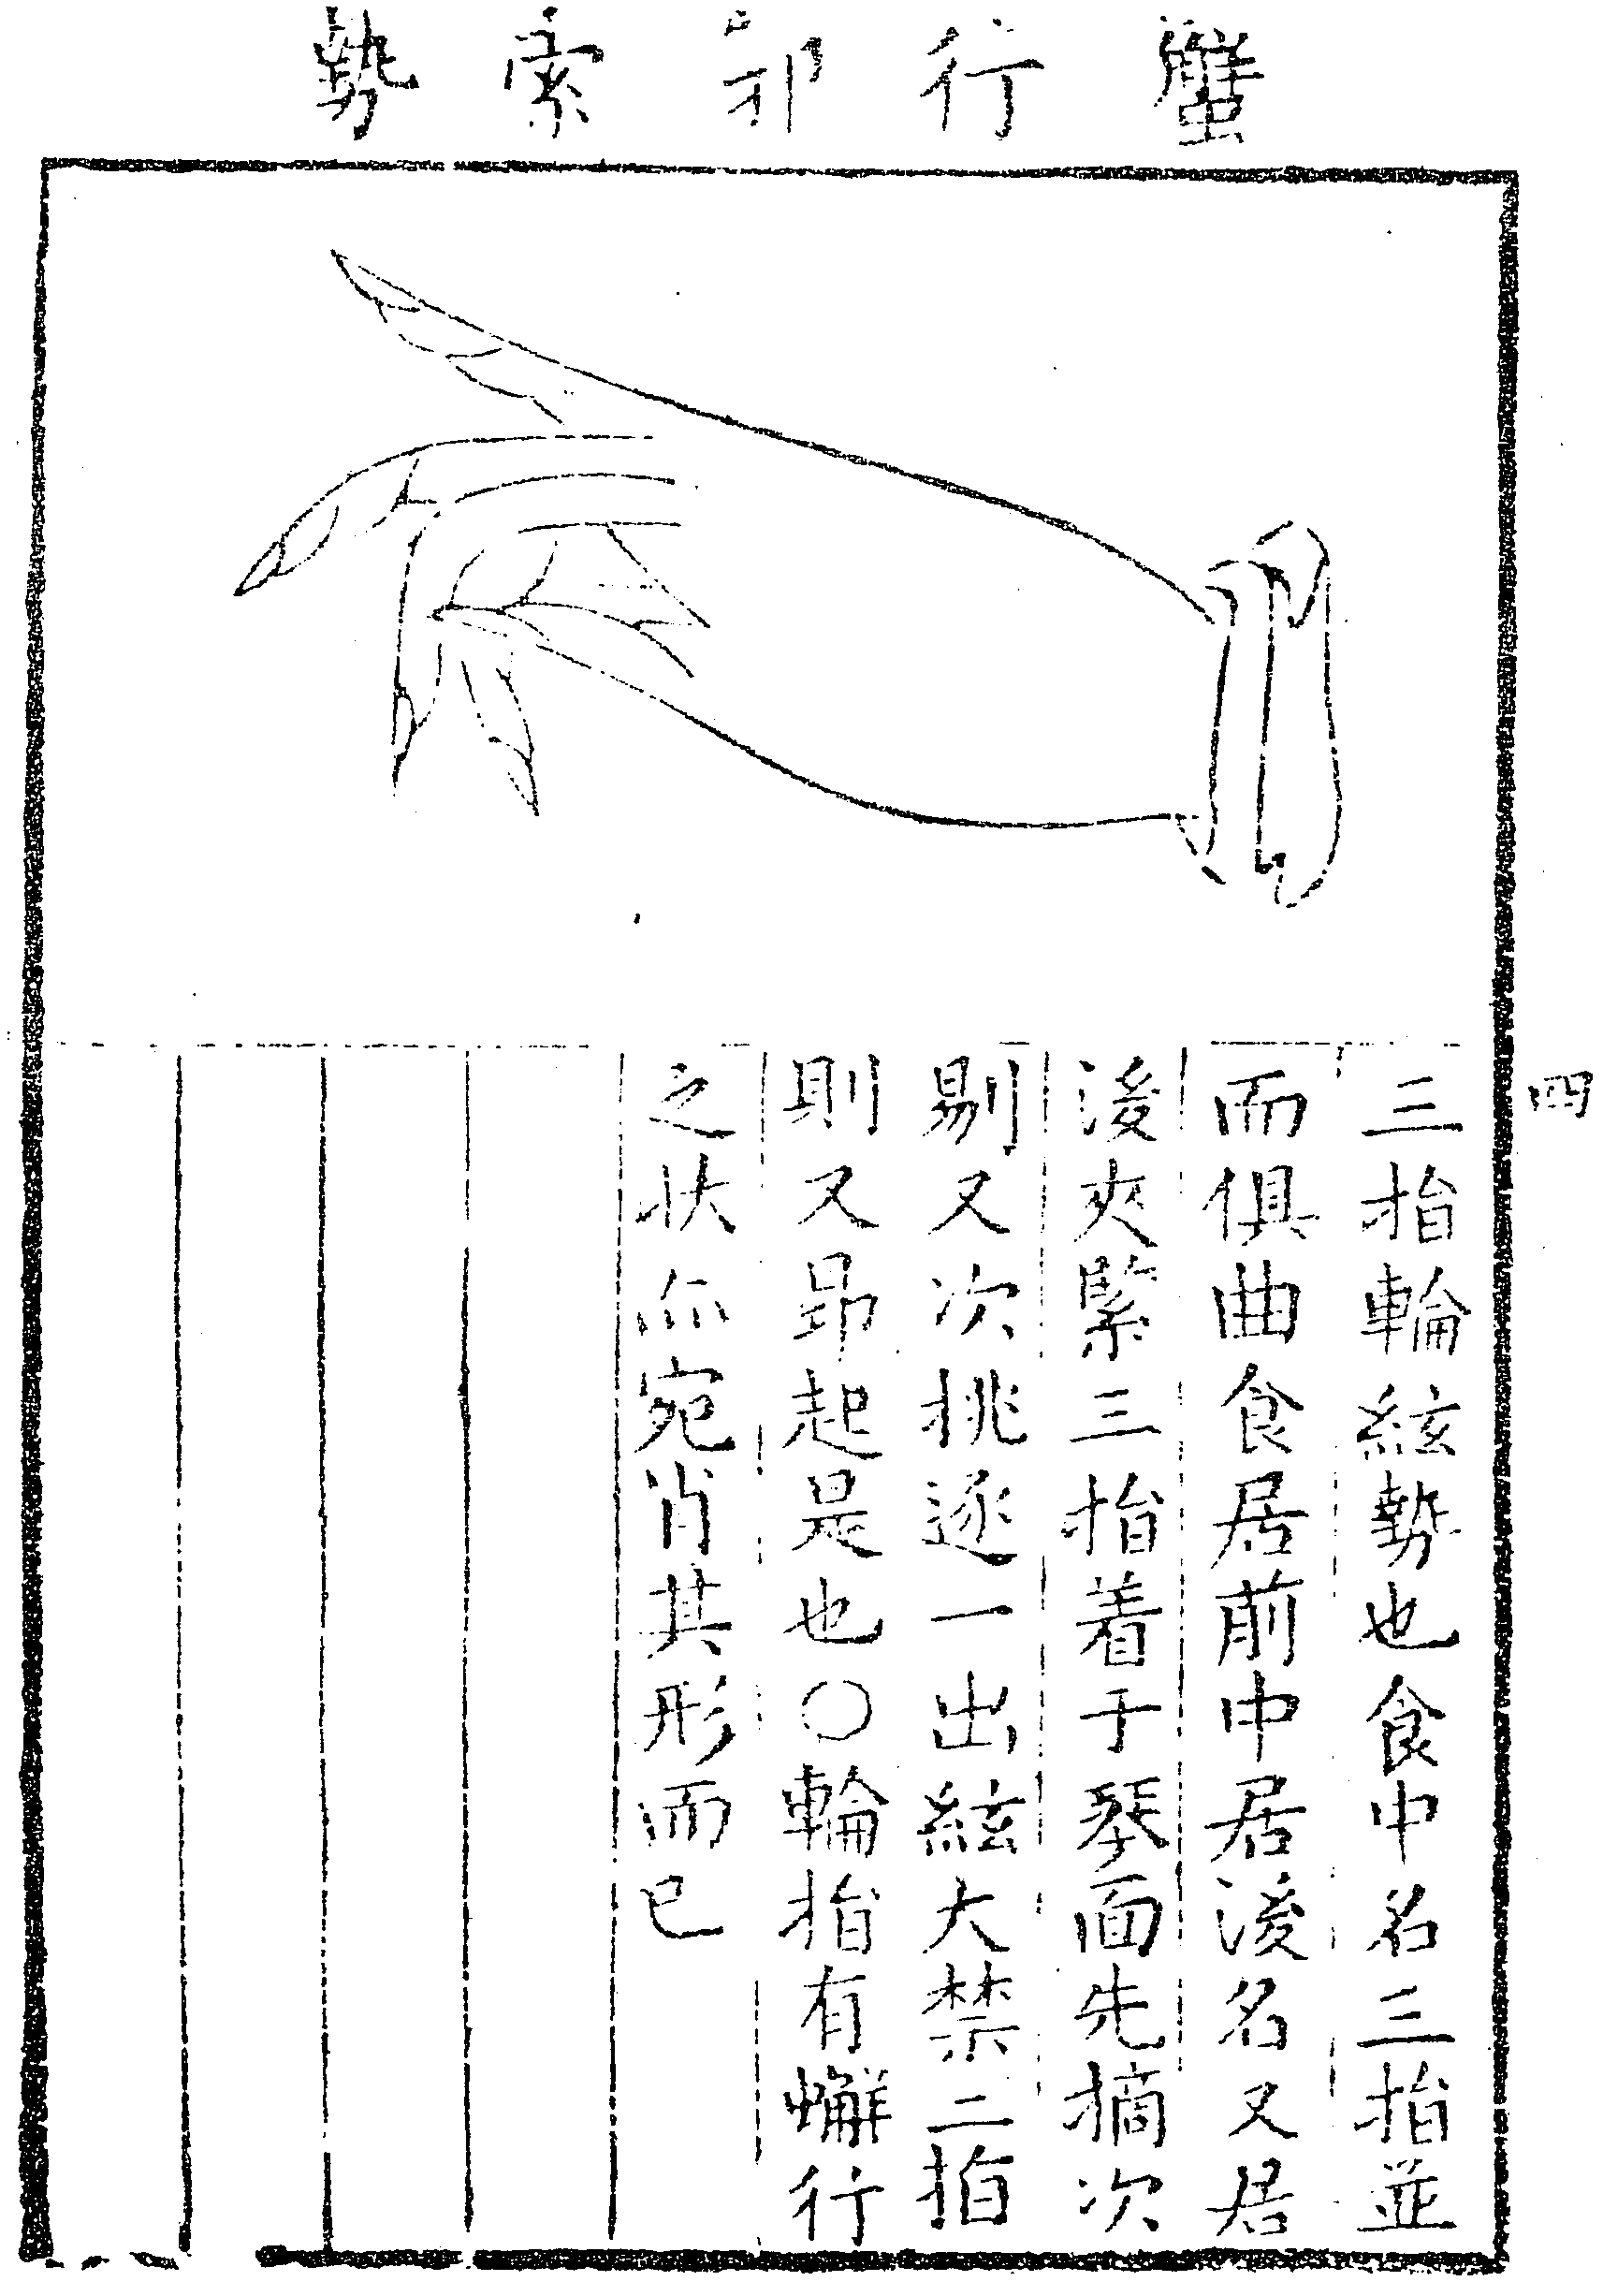 蟹行郭索勢
四
三指輪絃勢也食中名三指並
而俱曲食居前中居後名又居
後夾緊三指着于琴面先摘次
剔又次挑逐一出絃大禁二指
則又昂起是也〇輪指有蠏行
之狀亦宛肖其形而已